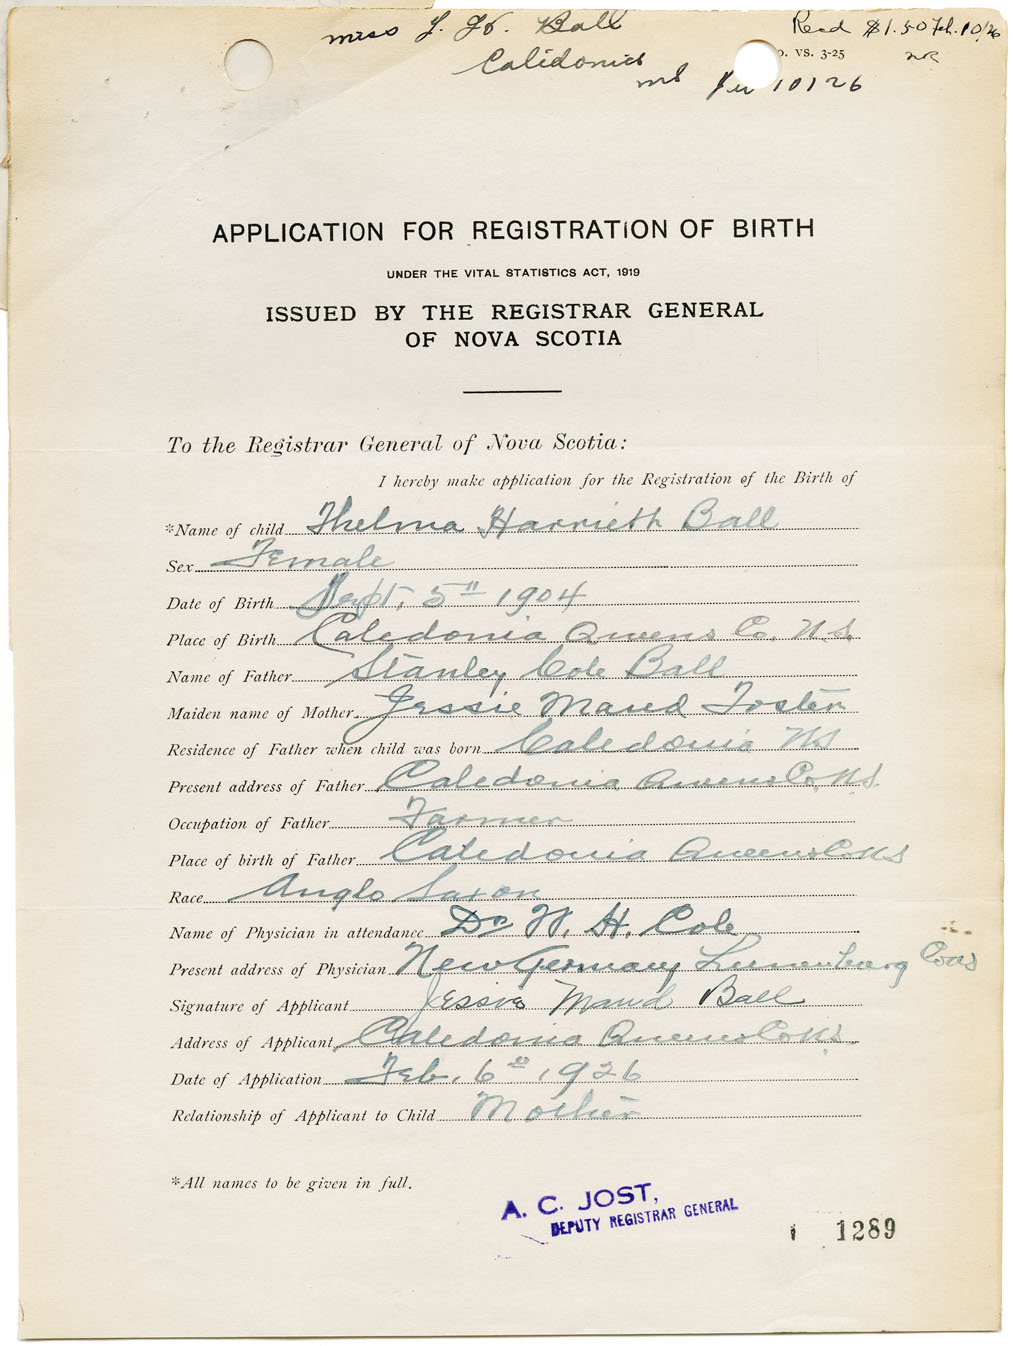 Miss T. H. Ball
Recd $1.50 Feb. 10/26
Caledonia
o. VS. 3-25
NR
10/26
APPLICATION FOR REGISTRATION OF BIRTH
UNDER THE VITAL STATISTICS ACT, 1919
ISSUED BY THE REGISTRAR GENERAL
OF NOVA SCOTIA
To the Registrar General of Nova Scotia:
I hereby make application for the Registration of the Birth of
*Name of child Thelma Harrieth Ball
Sex Female
Date of Birth Sept. 5th 1904
Place of Birth Caledonia Queens Co. N.S.
Name of Father Stanley Cole Ball
Maiden name of Mother Jessie Maud Foster
Residence of Father when child was born Caledonia NS
Present address of Father Caledonia Queens Co. N.S.
Occupation of Father Farmer
Place of birth of Father Caledonia Queens Co NS
Race Anglo Saxon
Name of Physician in attendance Dr W. H. Cole
Present address of Physician New Germany Lunenburg Co NS
Signature of Applicant Jessie Maud Ball
Address of Applicant Caledonia Queens Co N.S.
Date of Application Feb. 6th 1926
Relationship of Applicant to Child Mother
*All names to be given in full.
A. C. JOST,
DEPUTY REGISTRAR GENERAL
1289